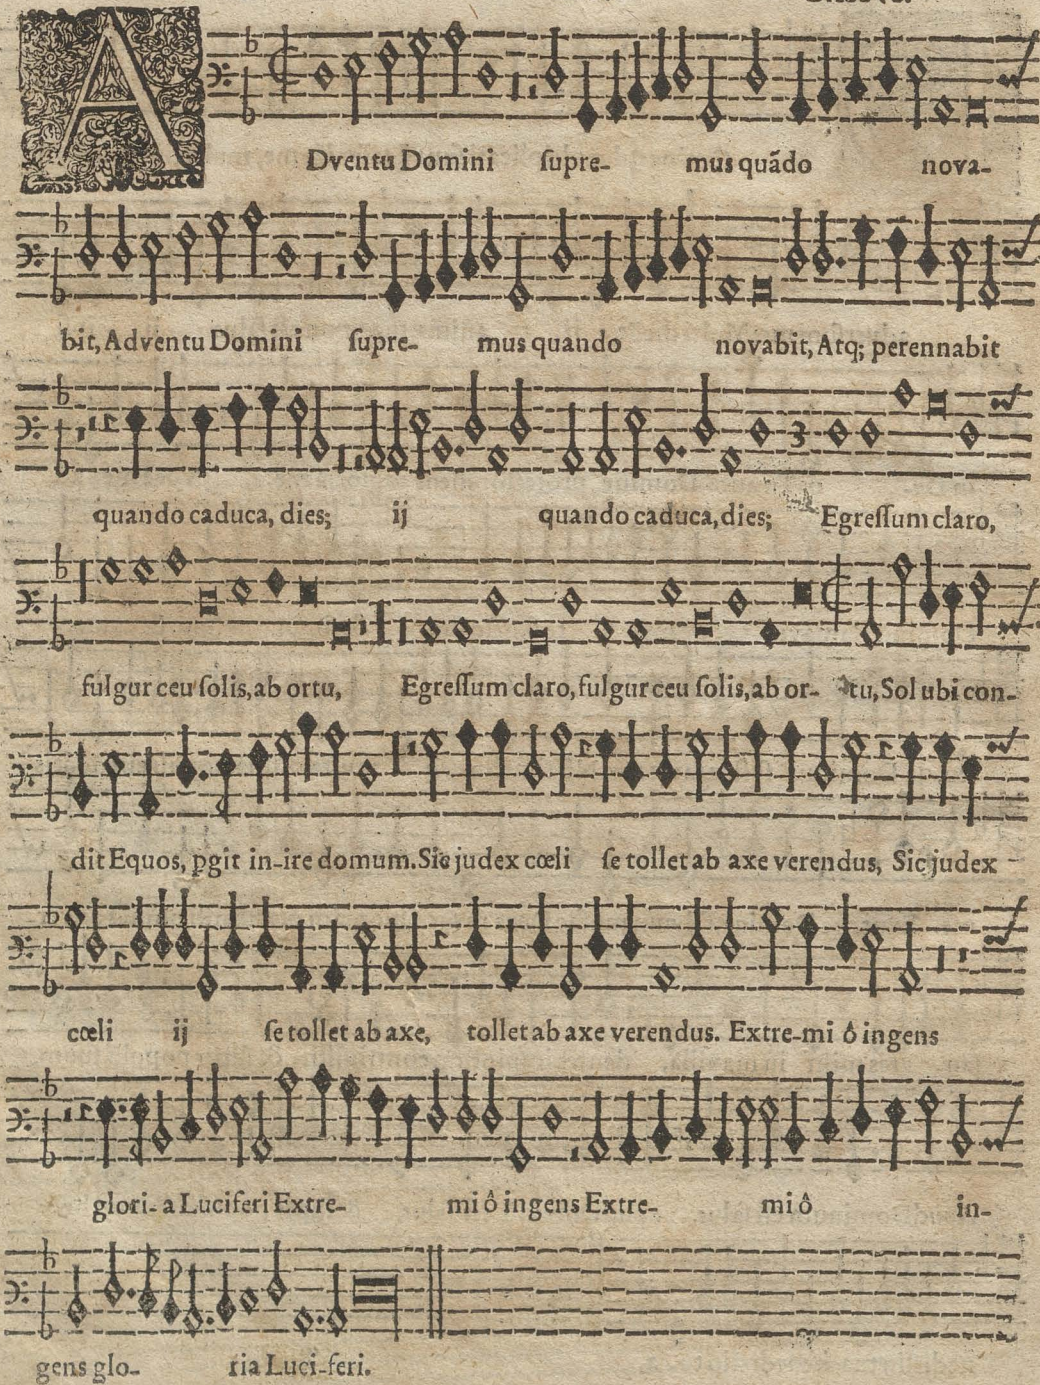 A
Dventu Domini ſupre- mus quãdo nova-
bit, Adventu Domini ſupre- mus quando novabit, Atq; perennabit
quando caduca, dies; ij quando caduca, dies; Egreſſum claro,
fulgur ceu ſolis, ab ortu, Egreſſum claro, fulgur ceu ſolis, ab or- tu, Sol ubi con-
dit Equos, ꝑgit in-ire domum. Sic judex cœli ſe tollet ab axe verendus, Sic judex
cœli ij ſe tollet ab axe, tollet ab axe verendus. Extre-mi ô ingens
glori-a Luciferi Extre- mi ô ingens Extre- mi ô in-
gens glo- ria Luci-feri.